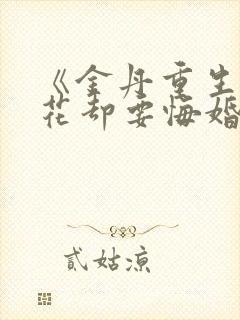 《金丹重生
花却要悔婚
贰姑凉